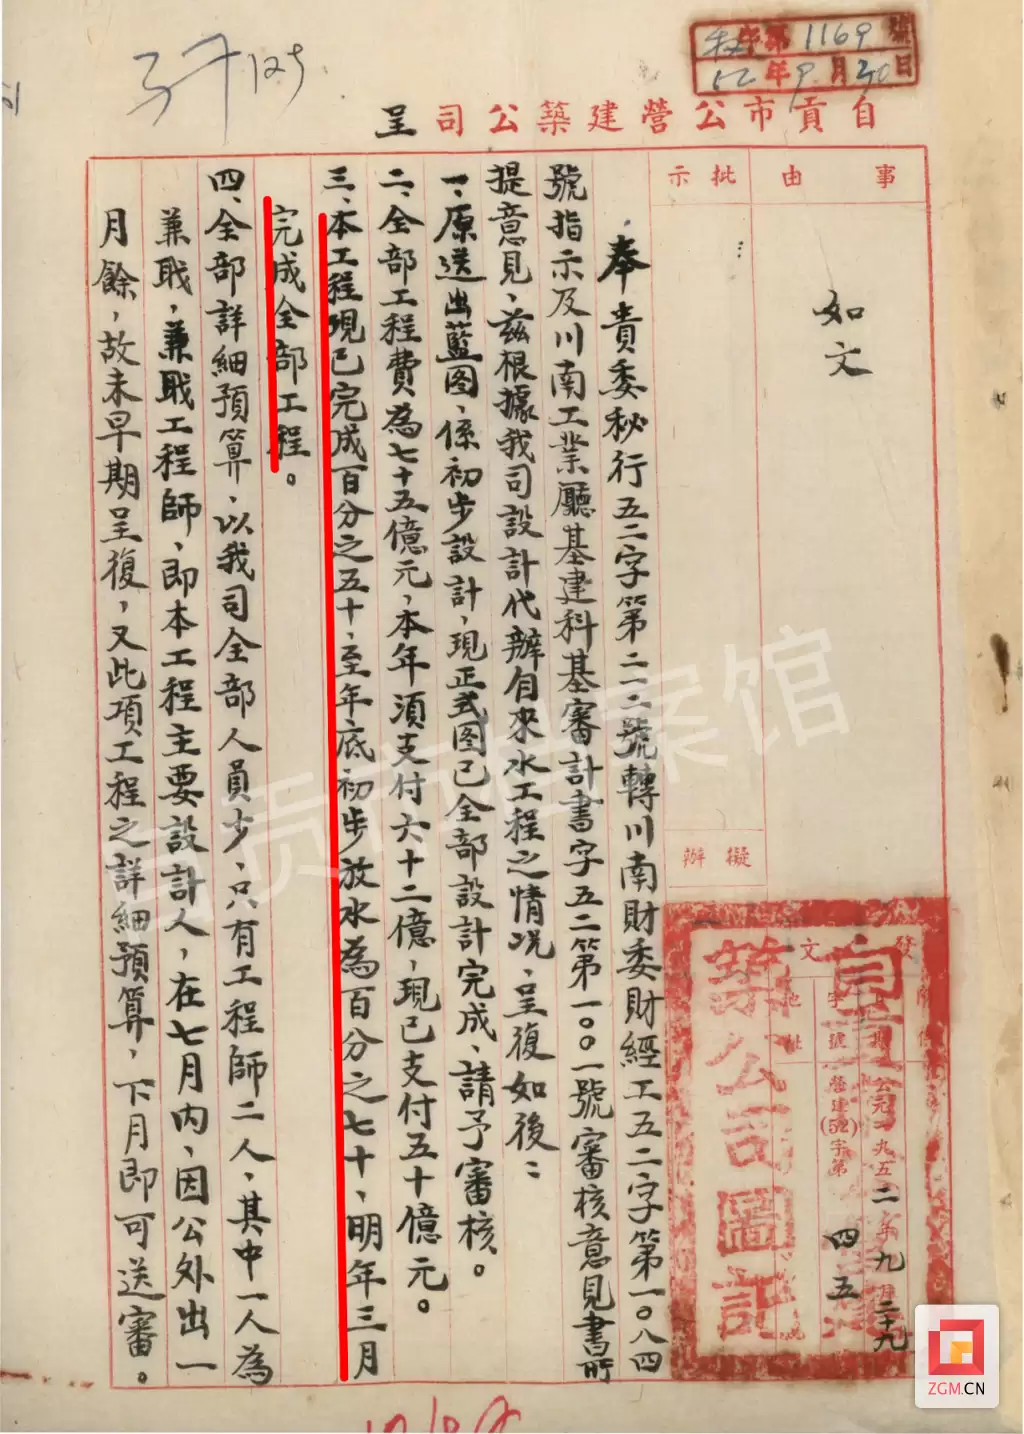 1169號
52年9月30日
自貢市公營建築公司呈
事由
如文
批示
擬辦
發文
字號
地址
公元一九五二年九月二十九
營建(52)字第四五
築公司圖記
奉貴委秘行五二字第二二二號轉川南財委財經工五二字第一〇八四
號指示及川南工業廳基建科基審計書字五二第一〇〇一號審核意見書所
提意見、茲根據我司設計代辦自來水工程之情況、呈復如後:
一、原送出藍图、係初步設計,現正式图已全部設計完成、請予審核。
二、全部工程費為七十五億元,本年須支付六十二億,現已支付五十億元。
三、本工程現已完成百分之五十、至年底初步放水為百分之七十、明年三月
完成全部工程。
四、全部詳細預算、以我司全部人員少、只有工程師二人,其中一人為
兼職,兼職工程師、即本工程主要設計人,在七月內、因公外出一
月餘,故未早期呈復,又此項工程之詳細預算,下月即可送審。
自贡市档案馆
ZGM.CN